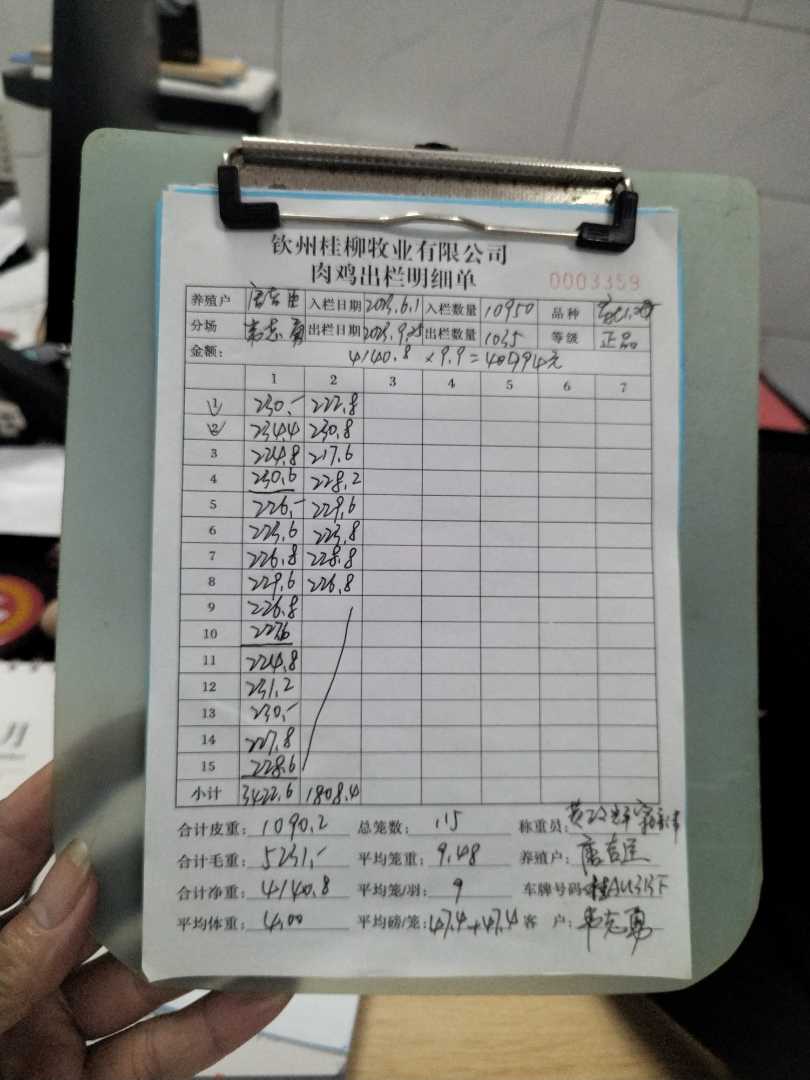 钦州桂柳牧业有限公司
肉鸡出栏明细单
0003359
养殖户 唐吉臣 入栏日期 2023.6.1 入栏数量 10950 品种
分场 韦志勇 出栏日期 2023.9.25 出栏数量 1035 等级 正品
金额: 4140.8 × 9.9 = 40994元
1 2 3 4 5 6 7
1 230.- 222.8
2 234.4 230.8
3 224.8 217.6
4 230.6 228.2
5 226.- 229.6
6 223.6 223.8
7 226.8 228.8
8 229.6 226.8
9 226.8
10 227.6
11 224.8
12 231.2
13 230.-
14 227.8
15 228.6
小计 3422.6 1808.4
合计皮重: 1090.2 总笼数: 115 称重员:
合计毛重: 5231.- 平均笼重: 9.48 养殖户: 唐吉臣
合计净重: 4140.8 平均笼/羽: 9 车牌号码:
平均体重: 4.00 平均磅/笼: 47.4+47.4 客 户: 韦志勇
月